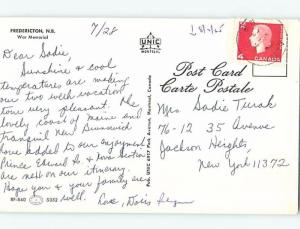 FREDERICTON, N.B.
War Memorial
7/28
Dear Sadie
Sunshine & cool
temperatures are making
our two week vacation
tour very pleasant. The
lovely coast of Maine and
tranquil New Brunswick
have added to our enjoyment
Prince Edward Is & Nova Scotia
are next on our itinerary.
Hope you & your family are
well. Love, Doris
BF-840 5352
UNIC
MONTREAL
Pub. UNIC 6917 Park Avenue, Montreal, Canada
4
CANADA
Post Card
Carte Postale
Mrs Sadie Turak
76-12 35 Avenue
Jackson Heights,
New York 11372